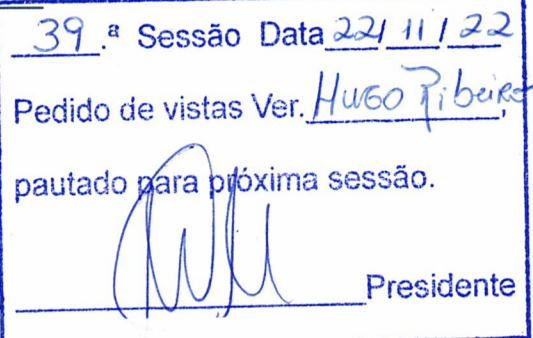 39.ª Sessão Data 22/11/22
Pedido de vistas Ver. Hugo Ribeiro,
pautado para próxima sessão.
Presidente